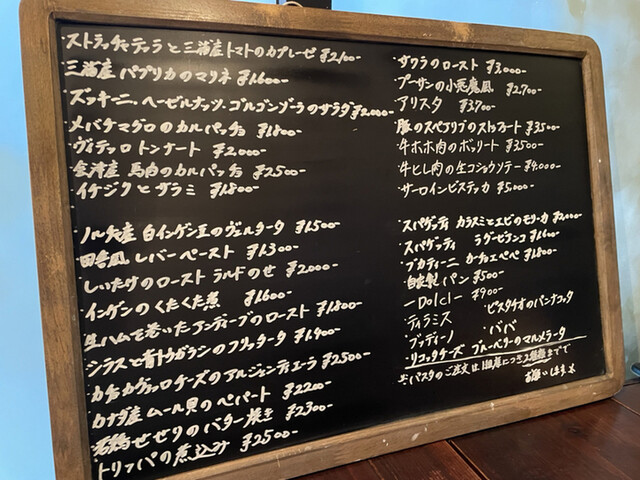 ・ストラッチャテッラと三浦産トマトのカプレーゼ ¥2,100-
・三浦産パプリカのマリネ ¥1,600-
・ズッキーニ、ヘーゼルナッツ、ゴルゴンゾーラのサラダ ¥2,000-
・メバチマグロのカルパッチョ ¥1,800-
・ヴィテッロトンナート ¥2,000-
・会津産 馬肉のカルパッチョ ¥2500-
・イチジクとサラミ ¥1,800-
・白インゲン豆のヴェルタータ ¥1,500-
・田舎風レバーペースト ¥1,300-
・しいたけのロースト ラルドのせ ¥2,000-
・インゲンのくたくた煮 ¥1,600-
・生ハムで巻いたアンディーブのロースト ¥1,800-
・シラスと青トウガラシのフリッタータ ¥1,900-
・カチョカヴァッロチーズのアルジェンティエーラ ¥2500-
・カナダ産 ムール貝のペパート ¥2200-
・せせりのバター焼き ¥2300-
・トリッパの煮込み ¥2500-
・サワラのロースト ¥3,000-
・プーサンの小悪魔風 ¥2,700-
・アリスタ ¥3,700-
・豚のスペアリブのストゥファート ¥3500-
・牛ホホ肉のボッリート ¥3500-
・牛ヒレ肉の生コショウソテー ¥4,000-
・サーロインビステッカ ¥5,000-
・スパゲッティ カラスミとエビのモリーカ ¥2,000-
・スパゲッティ ラグービアンコ ¥1,600-
・ブカティーニ カーチョエペペ ¥1,800-
・自家製パン ¥500-
-DOLCI- ¥900-
・ティラミス ・ピスタチオのパンナコッタ
・ブッディーノ ・ババ
・リコッタチーズ ブルーベリーのマルメラータ
※パスタのご注文は1組様につき2種類までで
お願いします